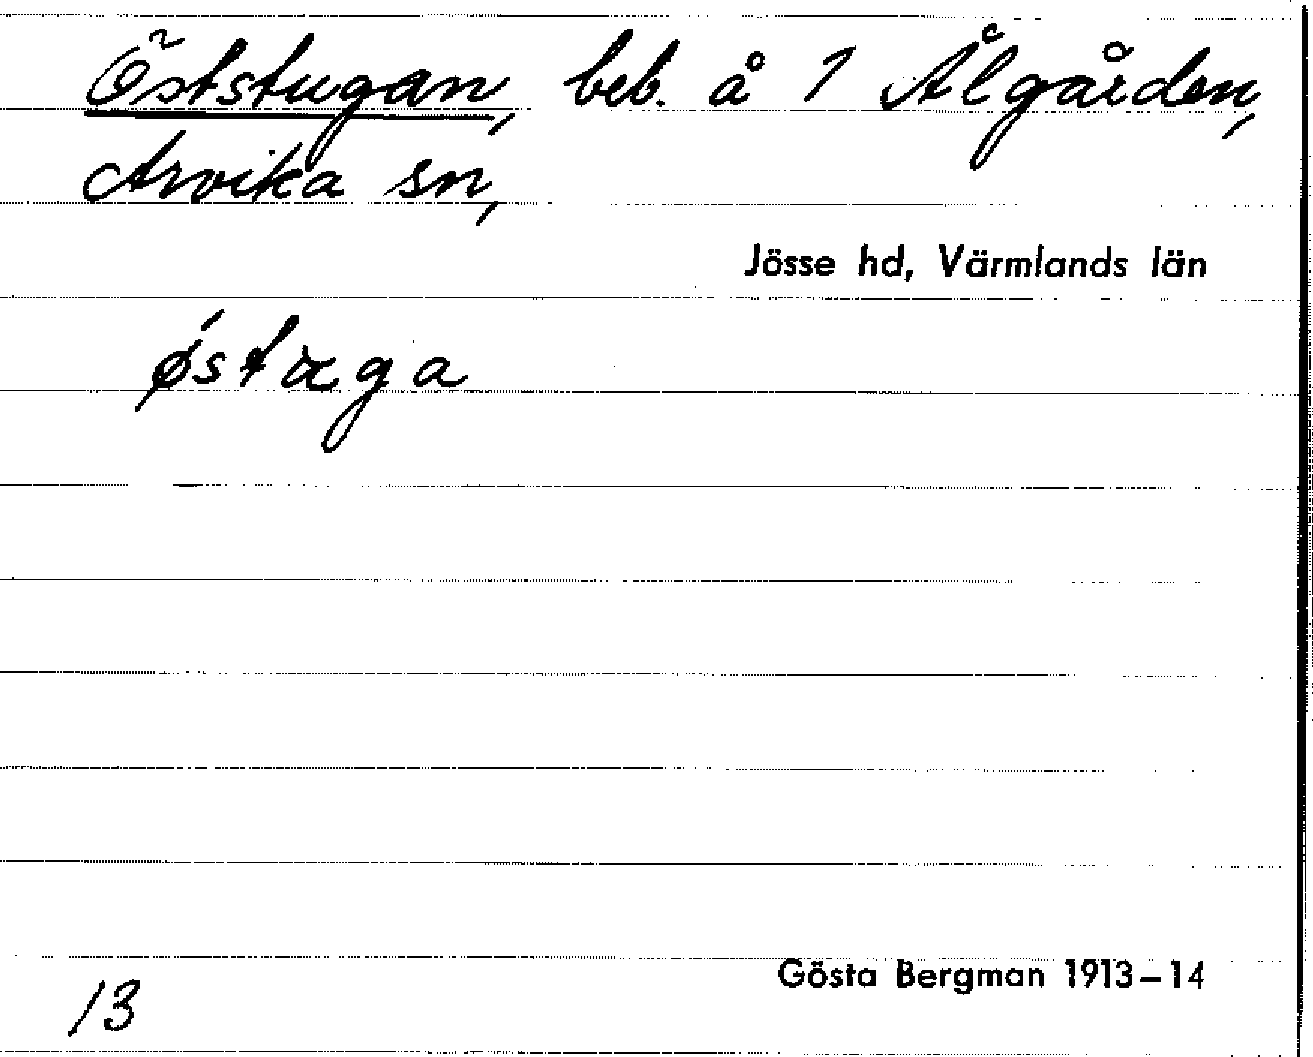 Öststugan, beb. å 1 Ålgården,
Arvika sn,
Jösse hd, Värmlands län
ǿstæga
Gösta Bergman 1913–14
13